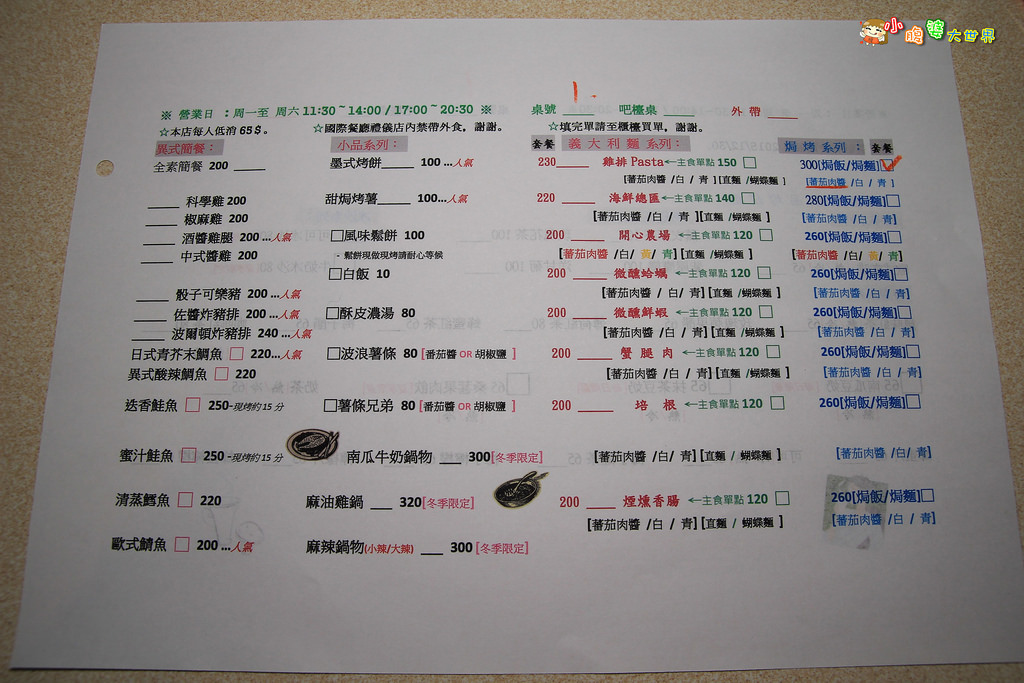 小腹婆大世界
1.
※ 營業日 ：周一至 周六 11:30 ~ 14:00 / 17:00 ~ 20:30 ※ 桌號 ____ 吧檯桌 ____ 外帶 ____
☆本店每人低消 65$。 ☆國際餐廳禮儀店內禁帶外食，謝謝。 ☆填完單請至櫃檯買單，謝謝。
異式簡餐： 小品系列： 套餐 義大利麵系列： 焗烤系列： 套餐
全素簡餐 200 ____ 墨式烤餅____ 100 ...人氣 230____ 雞排 Pasta←主食單點 150 □ 300[焗飯/焗麵]□
[蕃茄肉醬 /白 / 青 ][直麵 /蝴蝶麵 ] [蕃茄肉醬 /白 / 青 ]
____ 科學雞 200 甜焗烤薯____ 100...人氣 220 ____ 海鮮總匯←主食單點 140 □ 280[焗飯/焗麵]□
____ 椒麻雞 200 [蕃茄肉醬 /白 / 青 ][直麵 /蝴蝶麵 ] [蕃茄肉醬 /白 / 青]
____ 酒醬雞腿 200 ...人氣 □風味鬆餅 100 200 ____ 開心農場 ←主食單點 120 □ 260[焗飯/焗麵]□
____ 中式醬雞 200 - 鬆餅現做現烤請耐心等候 [蕃茄肉醬 /白/ 黃/ 青][直麵 /蝴蝶麵 ] [蕃茄肉醬 /白/ 黃/ 青]
□白飯 10 200 ____ 微醺蛤蠣 ←主食單點 120 □ 260[焗飯/焗麵]□
____ 骰子可樂豬 200 ...人氣 [蕃茄肉醬 /白/ 青][直麵 /蝴蝶麵 ] [蕃茄肉醬 /白/ 青]
____ 佐醬炸豬排 200 ...人氣 □酥皮濃湯 80 200 ____ 微醺鮮蝦 ←主食單點 120 □ 260[焗飯/焗麵]□
____ 波爾頓炸豬排 240 ...人氣 [蕃茄肉醬 /白/ 青][直麵 /蝴蝶麵 ] [蕃茄肉醬 /白/ 青]
日式青芥末鯛魚 □ 220...人氣 □波浪薯條 80 [番茄醬 OR 胡椒鹽 ] 200 ____ 蟹 腿 肉 ←主食單點 120 □ 260[焗飯/焗麵]□
異式酸辣鯛魚 □ 220 [蕃茄肉醬 /白/ 青][直麵 /蝴蝶麵 ] [蕃茄肉醬 /白/ 青]
迭香鮭魚 □ 250-現烤約 15 分 □薯條兄弟 80 [番茄醬 OR 胡椒鹽 ] 200 ____ 培 根 ←主食單點 120 □ 260[焗飯/焗麵]□
蜜汁鮭魚 □ 250 -現烤約 15 分 南瓜牛奶鍋物 ___ 300[冬季限定] [蕃茄肉醬 /白/ 青][直麵 /蝴蝶麵 ] [蕃茄肉醬 /白/ 青]
清蒸鱈魚 □ 220 麻油雞鍋 ___ 320[冬季限定] 200 ____ 煙燻香腸 ←主食單點 120 □ 260[焗飯/焗麵]□
[蕃茄肉醬 /白 / 青][直麵 / 蝴蝶麵 ] [蕃茄肉醬 /白 / 青]
歐式鯖魚 □ 200 ...人氣 麻辣鍋物(小辣/大辣) ___ 300 [冬季限定]